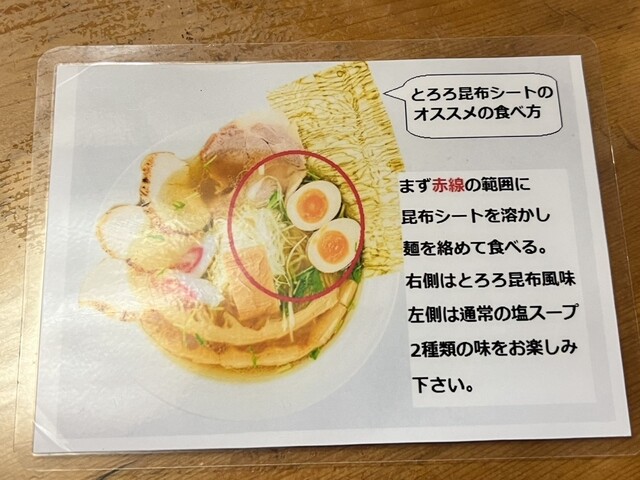 とろろ昆布シートの
オススメの食べ方
まず赤線の範囲に
昆布シートを溶かし
麺を絡めて食べる。
右側はとろろ昆布風味
左側は通常の塩スープ
2種類の味をお楽しみ
下さい。